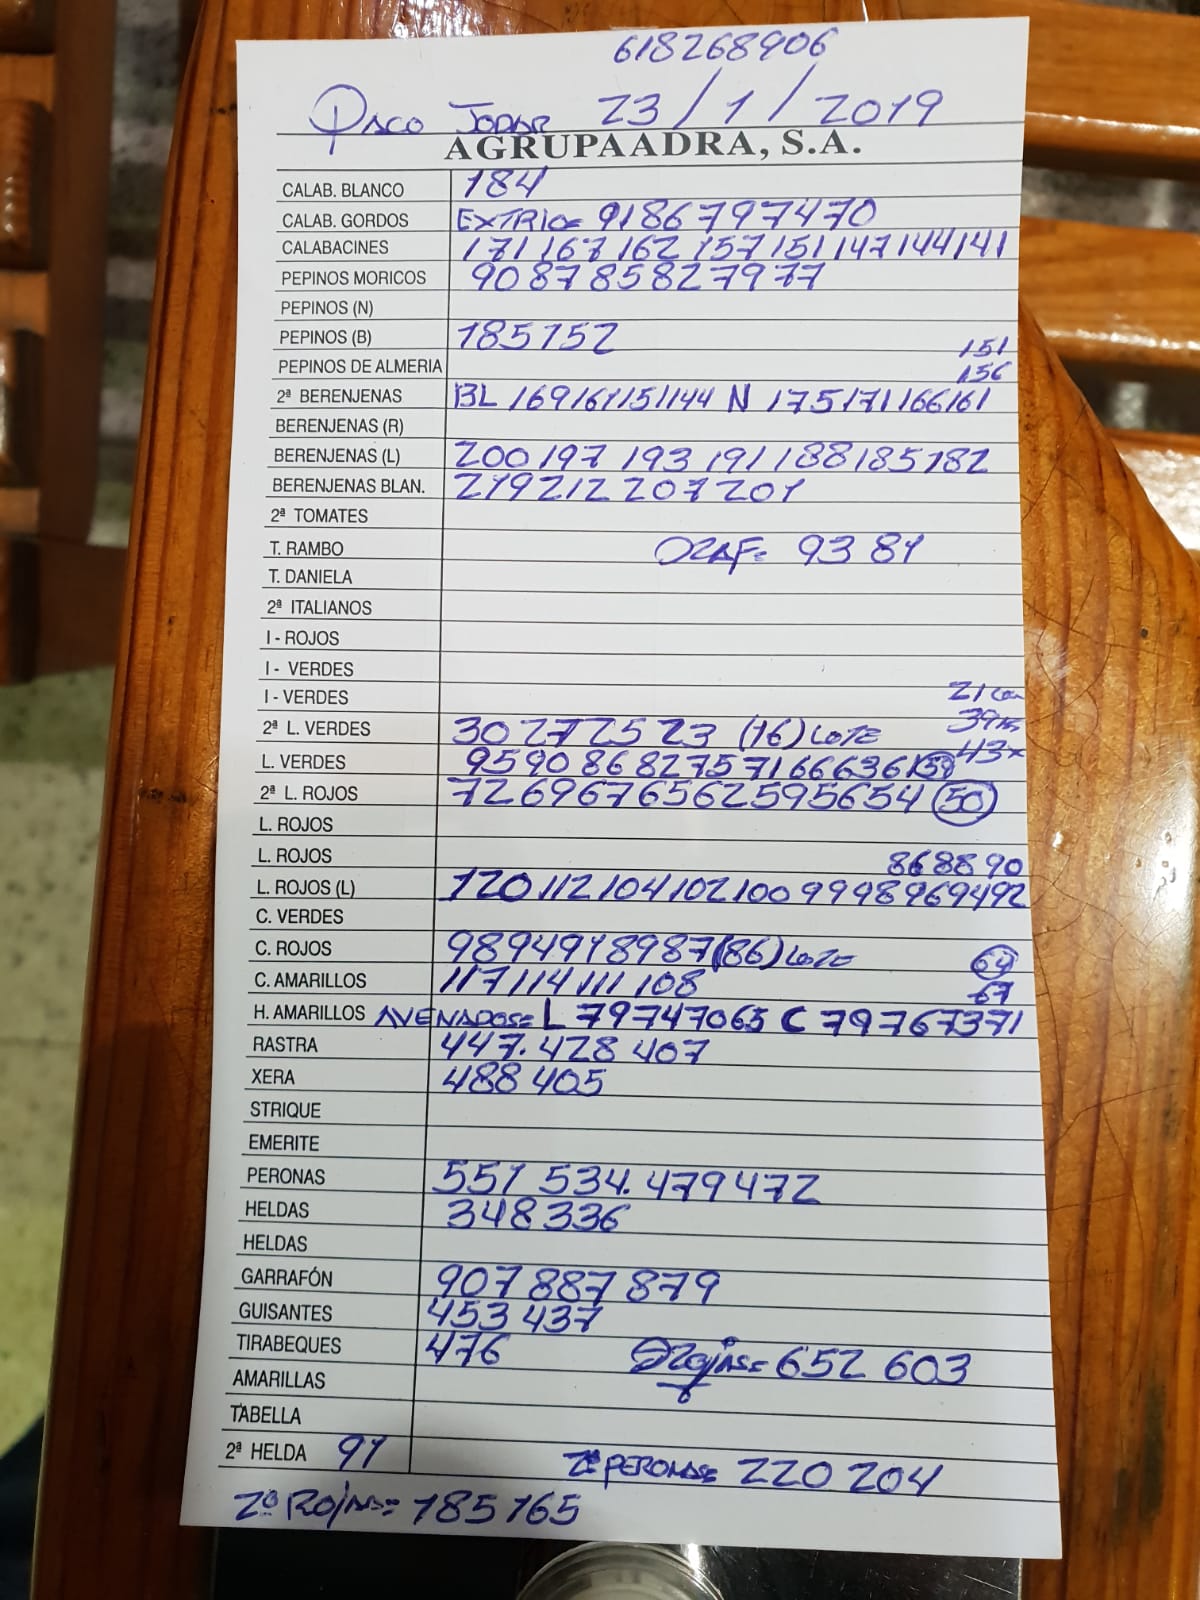 618268906
Paco Jodar 23/1/2019
AGRUPAADRA, S.A.
CALAB. BLANCO 184
CALAB. GORDOS EXTRIO= 91 86 79 74 70
CALABACINES 171 167 162 157 151 147 144 141
PEPINOS MORICOS 90 87 85 82 79 77
PEPINOS (N)
PEPINOS (B) 185 152
151
PEPINOS DE ALMERIA 156
2ª BERENJENAS BL 169 161 151 144 N 175 171 166 161
BERENJENAS (R)
BERENJENAS (L) 200 197 193 191 188 185 182
BERENJENAS BLAN. 219 212 207 201
2ª TOMATES
T. RAMBO = 93 81
T. DANIELA
2ª ITALIANOS
I - ROJOS
I - VERDES
I - VERDES 21
39
2ª L. VERDES 30 27 25 23 (16) LOTE
43x
L. VERDES 95 90 86 82 75 71 66 63 61 58
2ª L. ROJOS 72 69 67 65 62 59 56 54 50
L. ROJOS
L. ROJOS 86 88 90
L. ROJOS (L) 120 112 104 102 100 99 98 96 94 92
C. VERDES
C. ROJOS 98 94 91 89 87 (86) LOTE 64
C. AMARILLOS 117 114 111 108 67
H. AMARILLOS AVENADOS= L 79 74 70 65 C 79 76 73 71
RASTRA 447. 428 407
XERA 488 405
STRIQUE
EMERITE
PERONAS 551 534. 479 472
HELDAS 348 336
HELDAS
GARRAFÓN 907 887 879
GUISANTES 453 437
TIRABEQUES 476 = 652 603
AMARILLAS
TABELLA
2ª HELDA 91 2ª PERONAS= 220 204
2ª ROJAS= 185 165